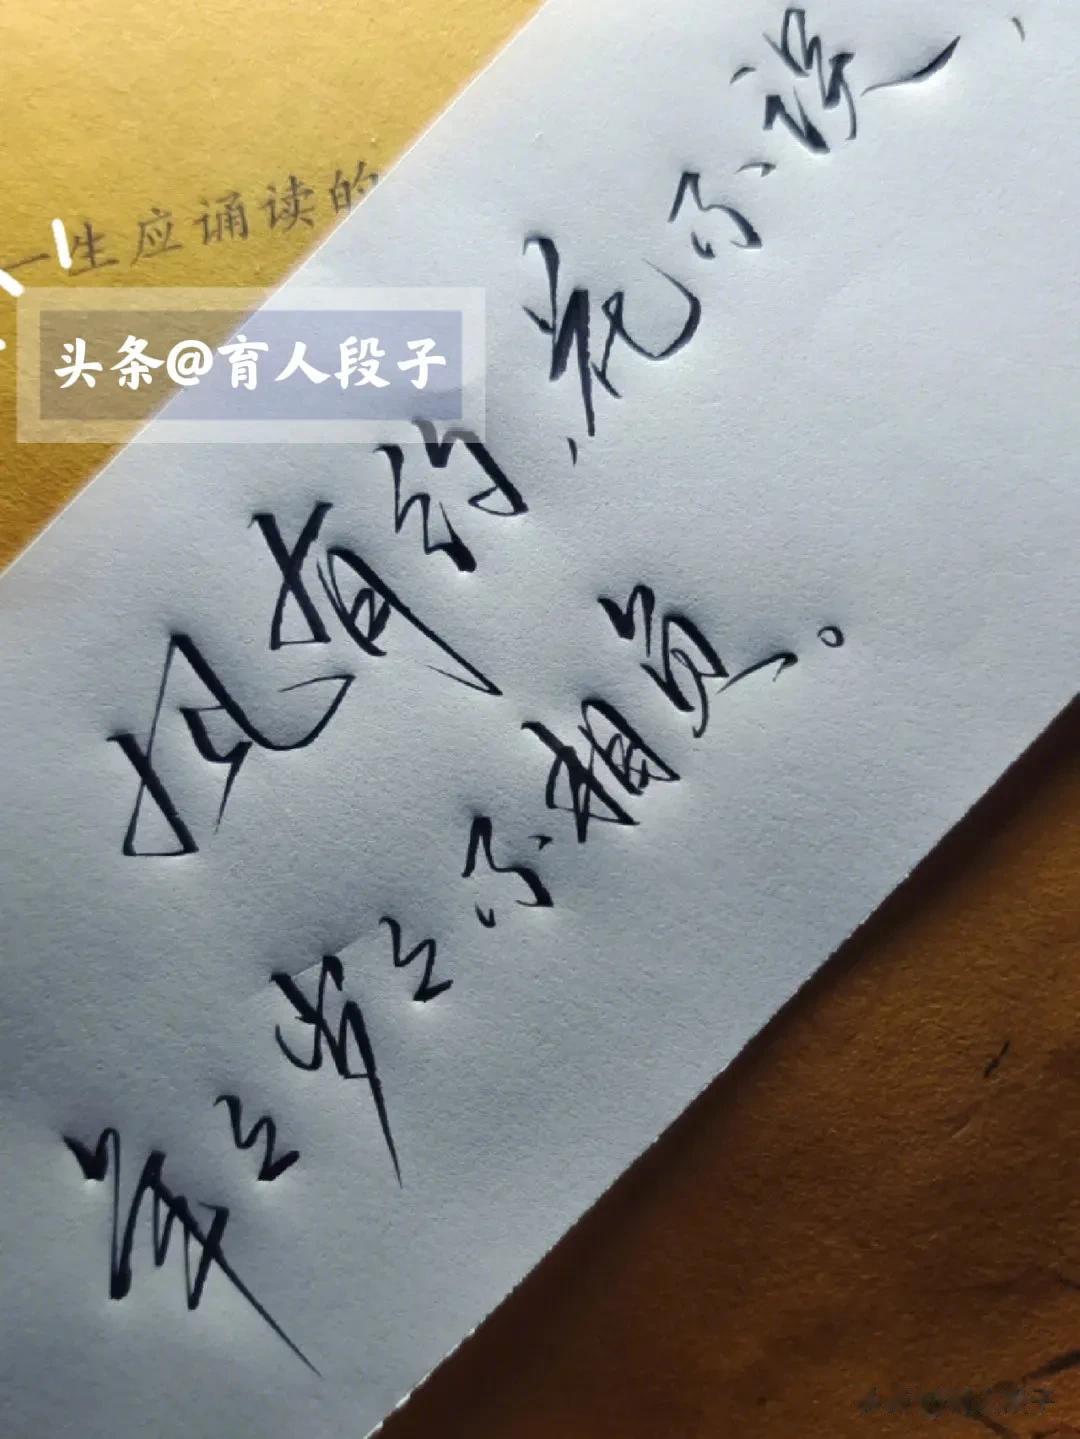 一生应诵读的
头条@育人段子
风有约，花不误，
年年岁岁不相负。